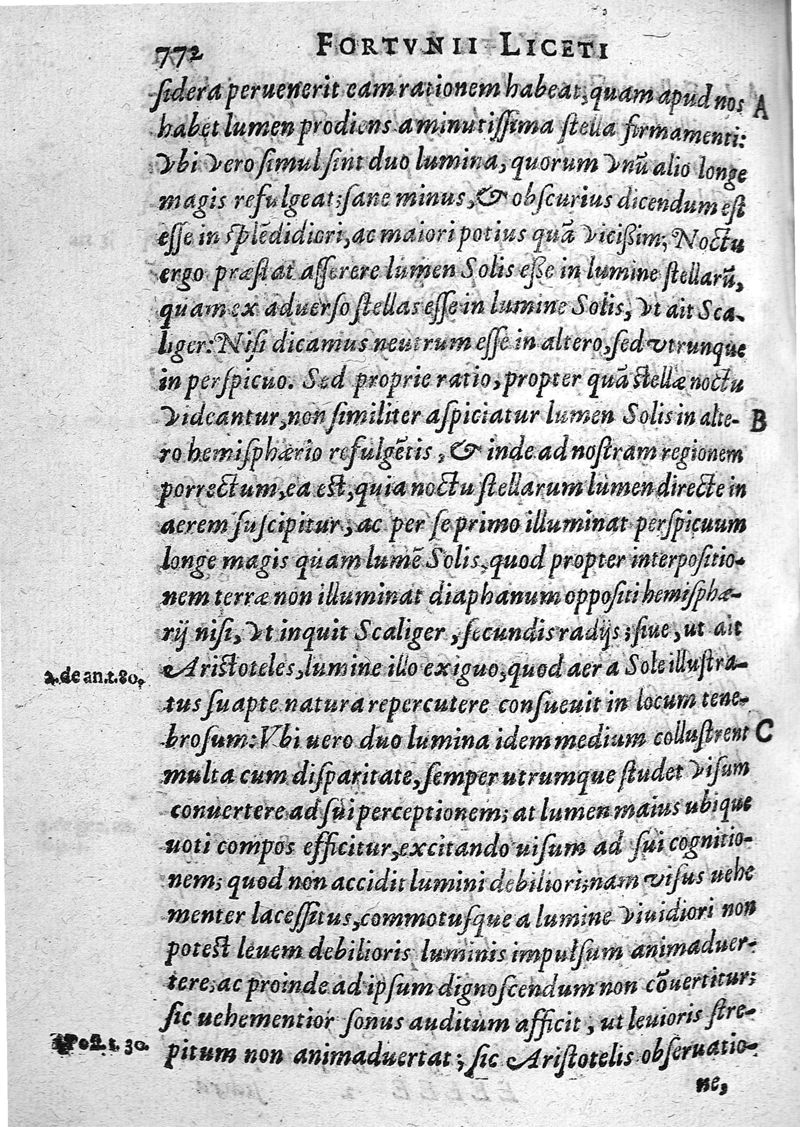 772 FORTVNII LICETI
sidera peruenerit eam rationem habeat, quam apud nos A
habet lumen prodiens a minutissima stella firmamenti:
Vbi vero simul sint duo lumina, quorum vnũ alio longe
magis refulgeat; sane minus, & obscurius dicendum est
esse in splẽdidiori, ac maiori potius quã vicißim; Noctu
ergo præstat asserere lumen Solis eße in lumine stellarũ,
quam ex aduerso stellas esse in lumine Solis, vt ait Sca-
liger: Nisi dicamus neutrum esse in altero, sed vtrunque
in perspicuo. Sed proprie ratio, propter quã stellæ noctu
videantur, non similiter aspiciatur lumen Solis in alte- B
ro hemisphærio refulgẽtis, & inde ad nostram regionem
porrectum, ea est, quia noctu stellarum lumen directe in
aerem suscipitur, ac per se primo illuminat perspicuum
longe magis quam lumẽ Solis, quod propter interpositio-
nem terræ non illuminat diaphanum oppositi hemisphæ-
rij nisi, vt inquit Scaliger, secundis radijs; siue, ut ait
2. de an. t. 80. Aristoteles, lumine illo exiguo, quod aer a Sole illustra-
tus suapte natura repercutere consueuit in locum tene-
brosum: Vbi uero duo lumina idem medium collustrent C
multa cum disparitate, semper utrumque studet visum
conuertere ad sui perceptionem; at lumen maius ubique
uoti compos efficitur, excitando uisum ad sui cognitio-
nem; quod non accidit lumini debiliori; nam visus uehe
menter lacessitus, commotusque a lumine viuidiori non
potest leuem debilioris luminis impulsum animaduer-
tere, ac proinde ad ipsum dignoscendum non cõuertitur;
sic uehementior sonus auditum afficit, ut leuioris stre-
Post. t. 30. pitum non animaduertat; sic Aristotelis obseruatio-
ne,